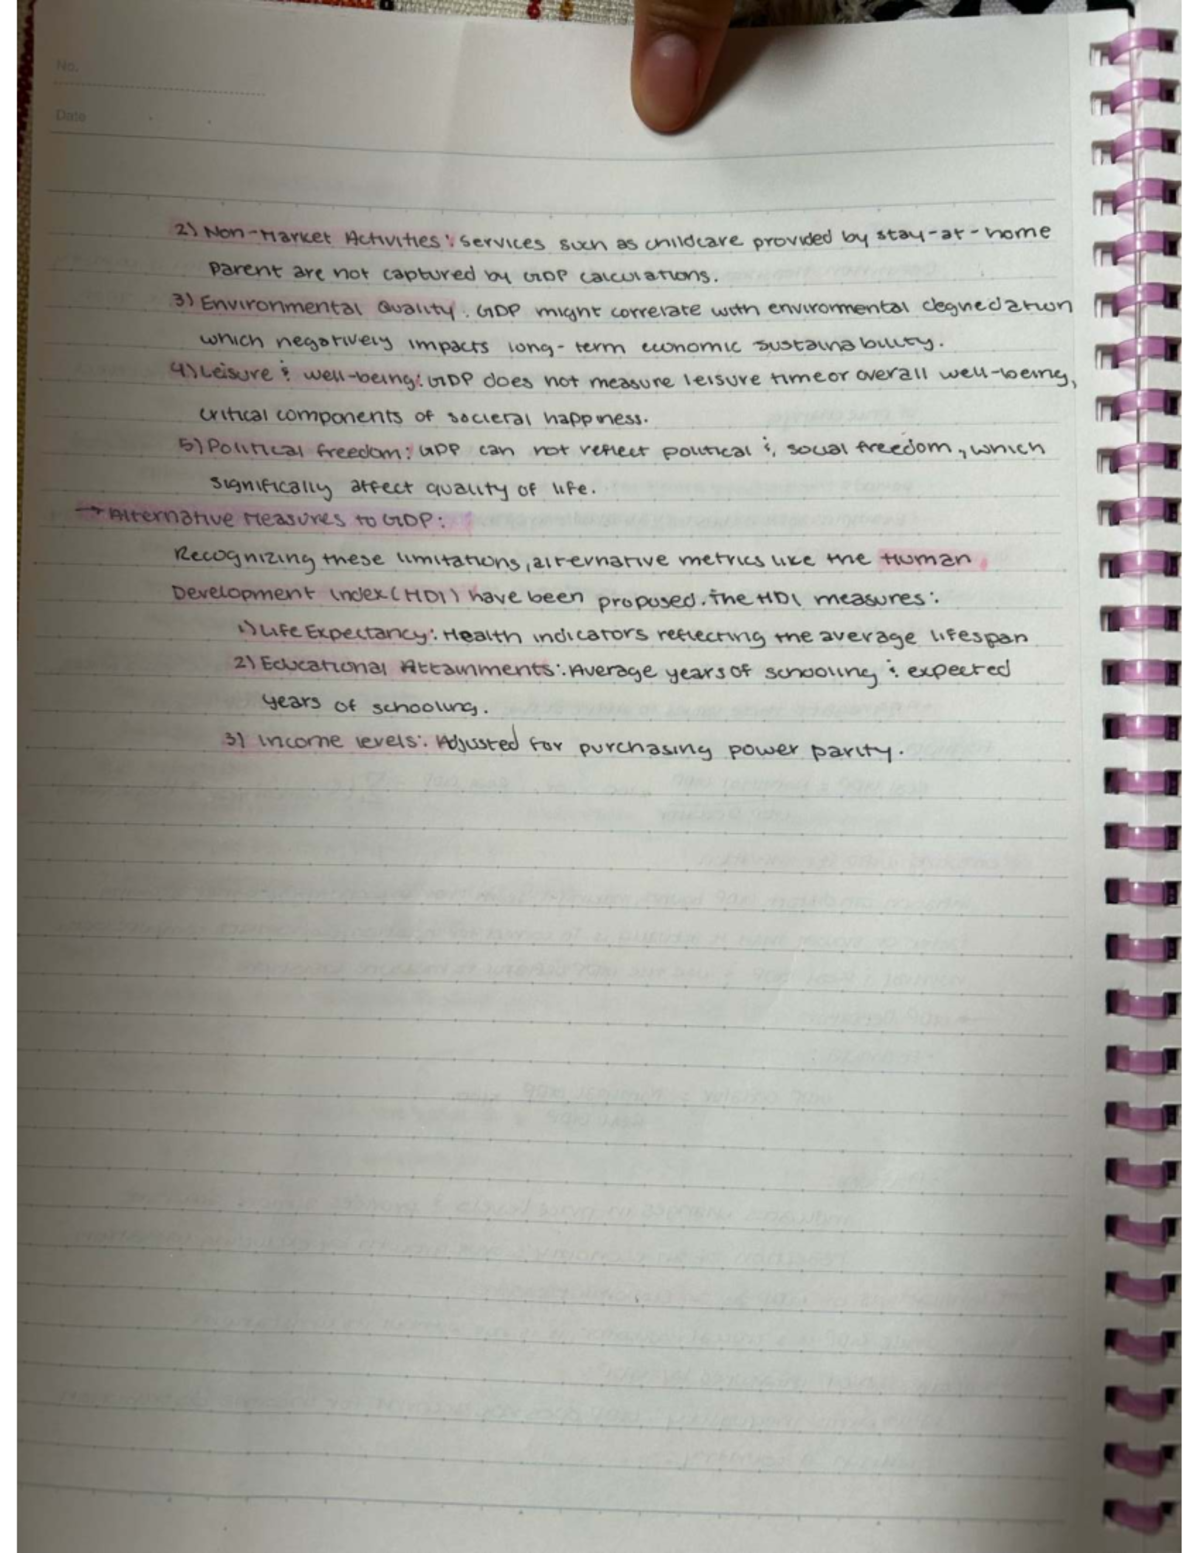 No.
Date
2) Non-Market Activities: Services such as childcare provided by stay-at-home
Parent are not captured by GDP calculations.
3) Environmental Quality. GDP might correlate with environmental degredation
which negatively impacts long-term economic sustainability.
4) Leisure & well-being: GDP does not measure leisure time or overall well-being,
critical components of societal happiness.
5) Political freedom: GDP can not reflect political & social freedom, which
significally affect quality of life.
→ Alternative Measures to GDP:
Recognizing these limitations, alternative metrics like the Human
Development Index (HDI) have been proposed. The HDI measures:
1) Life Expectancy: Health indicators reflecting the average lifespan
2) Educational Attainments: Average years of schooling & expected
years of schooling.
3) Income levels: Adjusted for purchasing power parity.